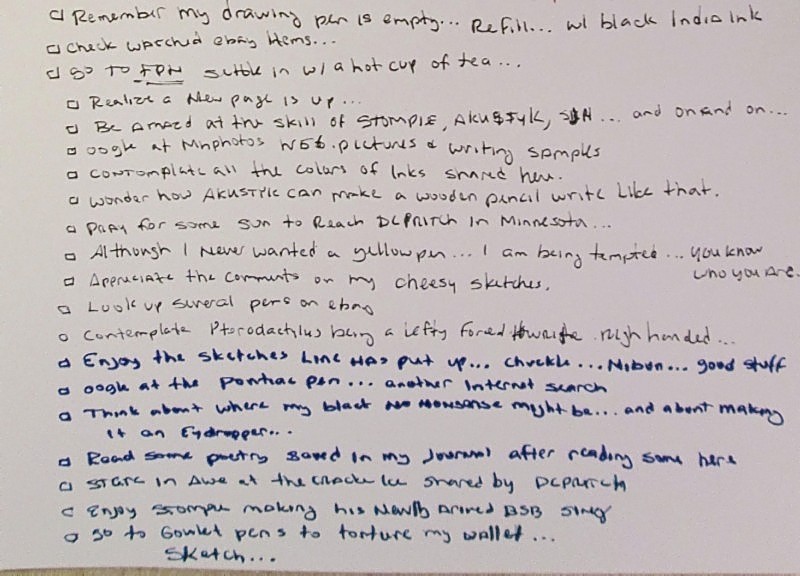 □ Remember my drawing pen is empty... Refill... w/ black India Ink
□ Check watched ebay Items...
□ go to FPN settle in w/ a hot cup of tea...
□ Realize a New page is up...
□ Be Amazed at the skill of STOMPIE, AKUSTYK, ... and on and on...
□ oogle at Mnphotos N56.pictures & writing samples
□ contemplate all the colors of Inks shared here.
□ wonder how AKUSTYK can make a wooden pencil write like that.
□ pray for some sun to Reach DCPRITCH in Minnesota...
□ Although I Never wanted a yellow pen... I am being tempted... you know
who you Are.
□ Appreciate the comments on my cheesy sketches.
□ Look up several pens on ebay
□ Contemplate Pterodactylus being a lefty forced write right handed...
□ Enjoy the sketches Line HAS put up... chuckle... Nibun... good stuff
□ oogle at the Pontiac pen... another Internet search
□ Think about where my black No Nonsense might be... and about making
it an Eydropper...
□ Read some poetry saved in my Journal after reading some here
□ STARE in Awe at the crackle Ice shared by DCPRITCH
□ Enjoy Stompie making his Newly Arived BSB SING
□ go to Goulet pens to torture my wallet...
Sketch...